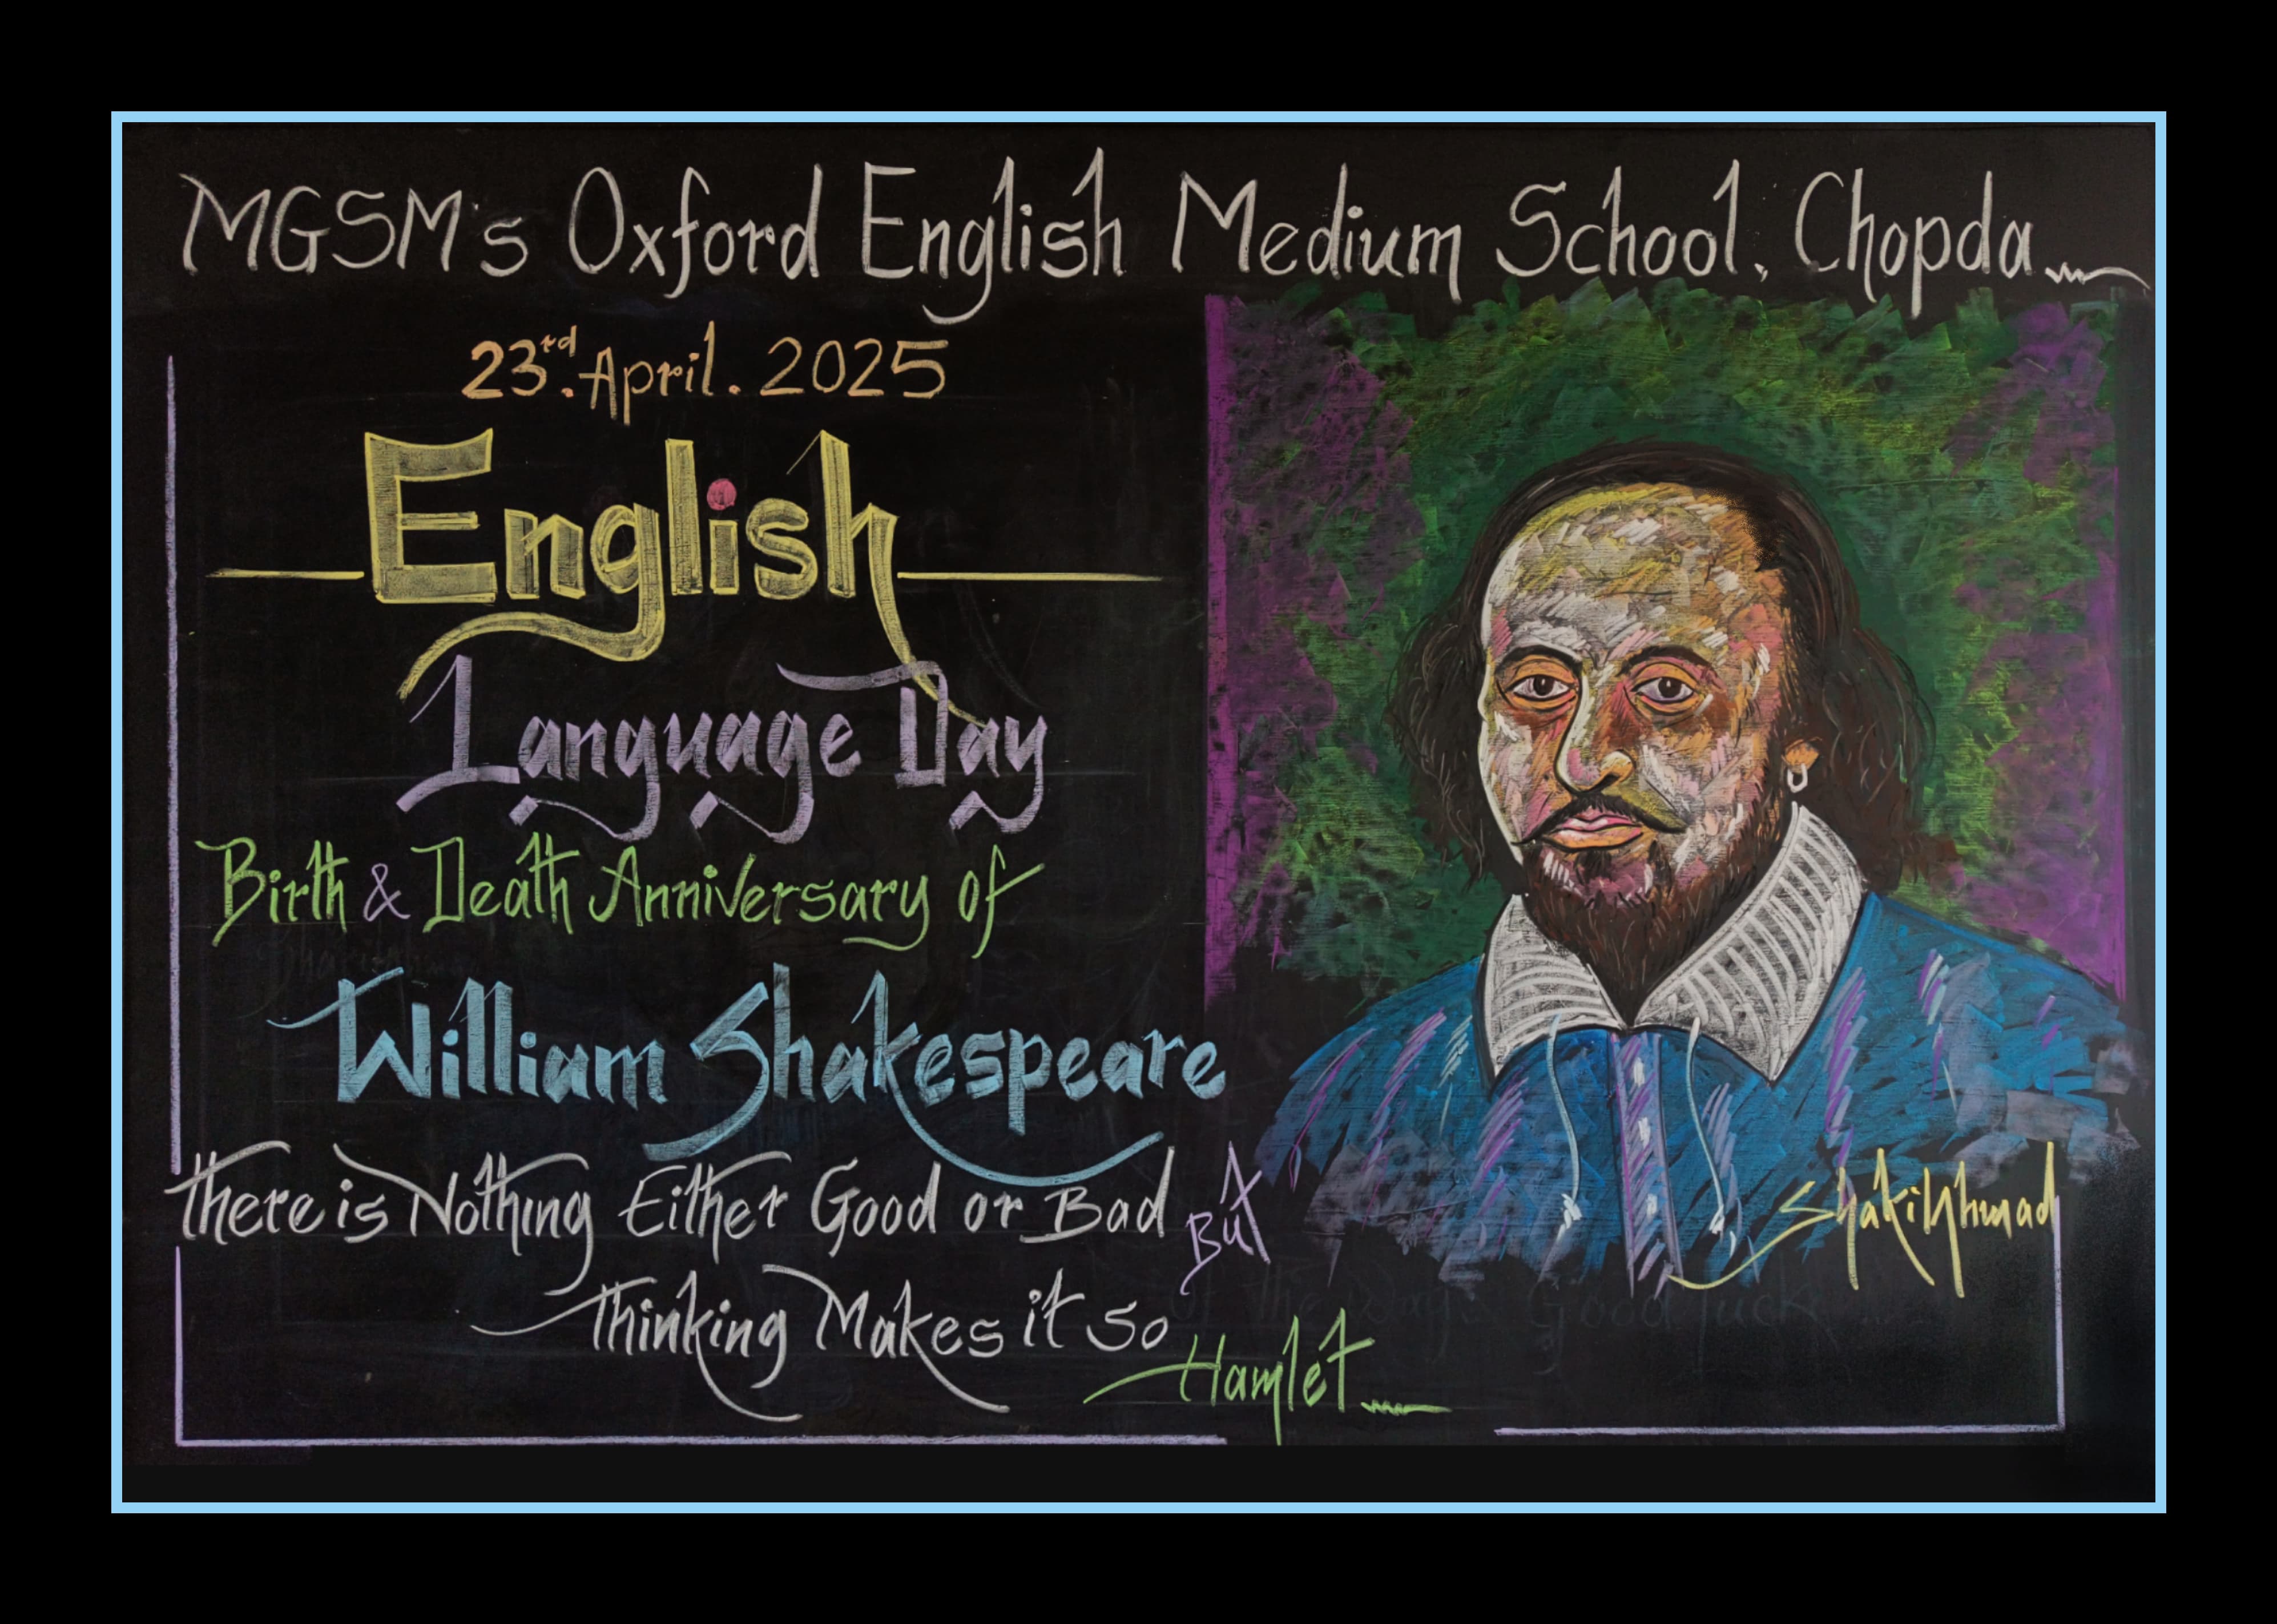 MGSM's Oxford English Medium School, Chopda
23rd. April. 2025
English
Language Day
Birth & Death Anniversary of
William Shakespeare
there is Nothing Either Good or Bad But
Thinking Makes it So
Hamlet
ShakilAhmad